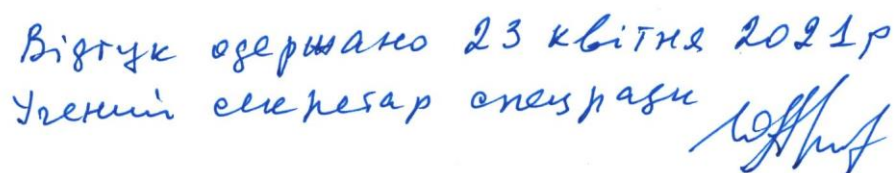 Відгук одержано 23 квітня 2021р
Учений секретар спецради